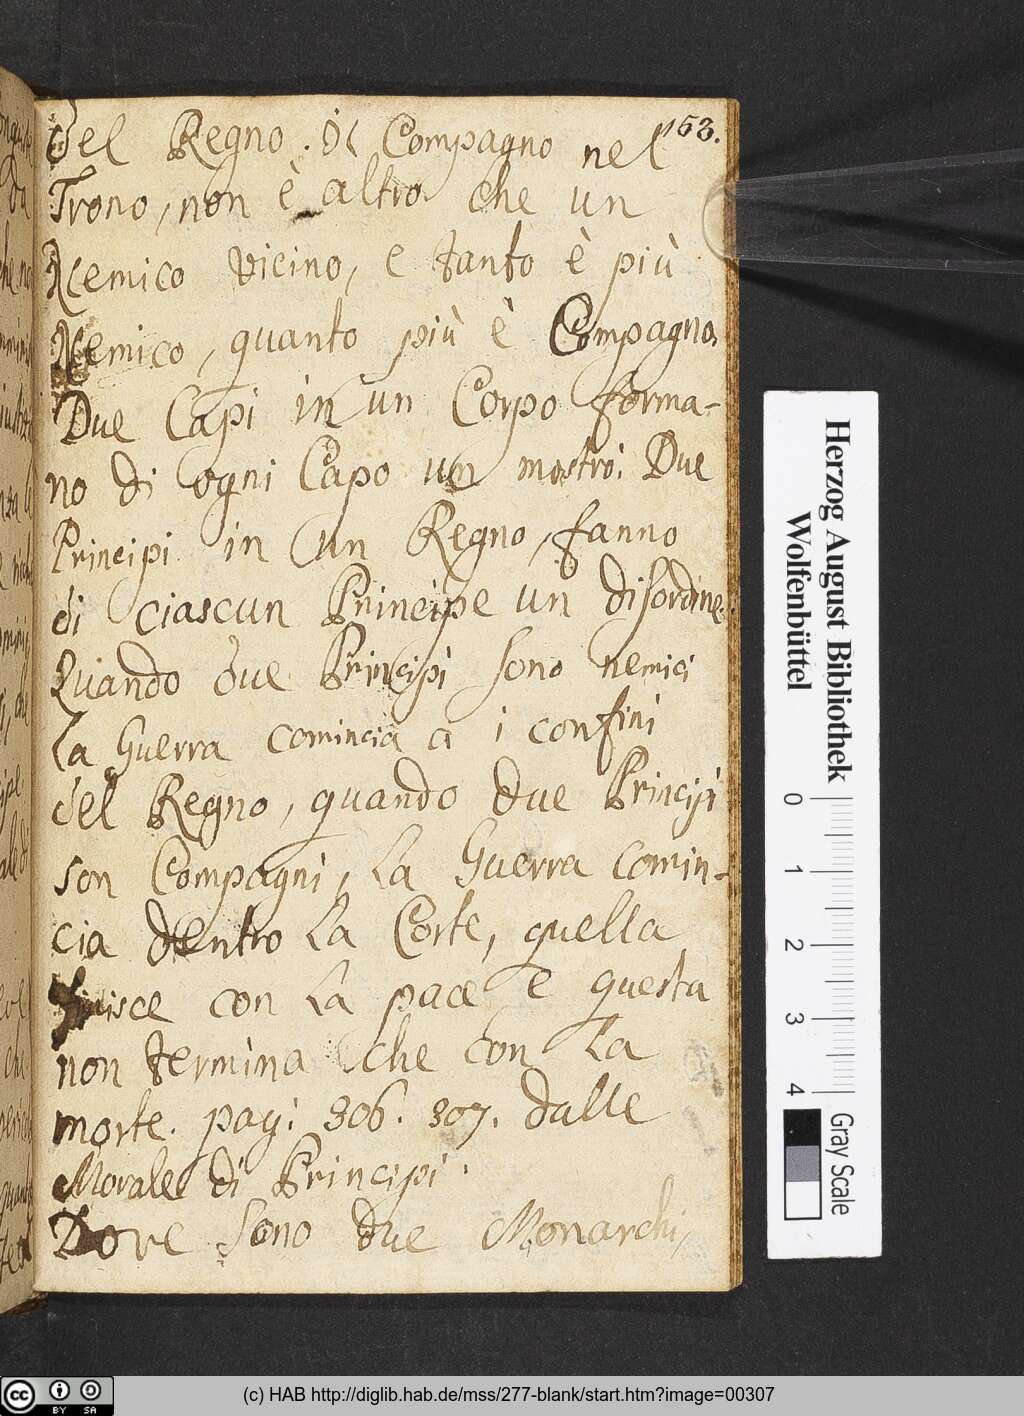 153.
del Regno. Il Compagno nel
Trono, non è altro che un
Nemico vicino, e tanto è più
Nemico, quanto più è Compagno.
Due Capi in un Corpo forma-
no di ogni Capo un mostro. Due
Principi in un Regno, fanno
di ciascun Principe un disordine.
Quando due Principi sono nemici
La Guerra comincia a i confini
del Regno, quando due Principi
son Compagni, La Guerra comin-
cia dentro La Corte, quella
finisce con La pace e questa
non termina che con La
morte. pag: 306. 307. dalle
Morale di Principi.
Dove sono due Monarchi,
Herzog August Bibliothek
Wolfenbüttel
0 1 2 3 4
Gray Scale
cc BY SA
(c) HAB http://diglib.hab.de/mss/277-blank/start.htm?image=00307